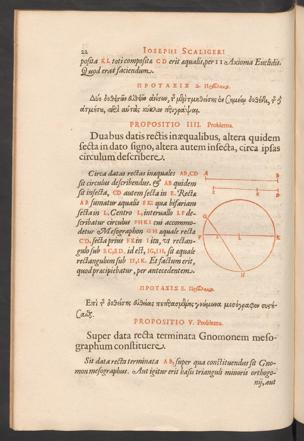 22 IOSEPHI SCALIGERI
posita KL toti composita CD erit aequalis, per 11 Axioma Euclidis.
Quod erat faciendum.
ΠΡΟΤΑΣΙΣ Δ. Πρόβλημα.
PROPOSITIO IIII. Problema.
Duabus datis rectis inæqualibus, altera quidem
secta in dato signo, altera autem insecta, circa ipsas
circulum describere.
Circa datas rectas inæquales AB, CD
sit circulus describendus. & AB quidem
sit insecta, CD autem secta in E. Recta
AB sumatur æqualis FK: qua bifariam
secta in L, Centro L, intervallo LF de-
scribatur circulus cui accommo-
detur Mesographon GH æquale recta
CD, secta prius FK in I ita, ut rectan-
gulo sub EC, ED. id est, IG, IH. sit æquale
rectangulum sub IF, IK. Et factum erit,
quod præcipiebatur, per antecedentem.
A B
C E D
G F I L K H
ΠΡΟΤΑΣΙΣ Ε. Πρόβλημα.
PROPOSITIO V. Problema.
Super data recta terminata Gnomonem meso-
graphum constituere.
Sit data recta terminata AB, super qua constituendus sit Gno-
mon mesographus. Aut igitur erit basis trianguli minoris orthogo-
nij, aut